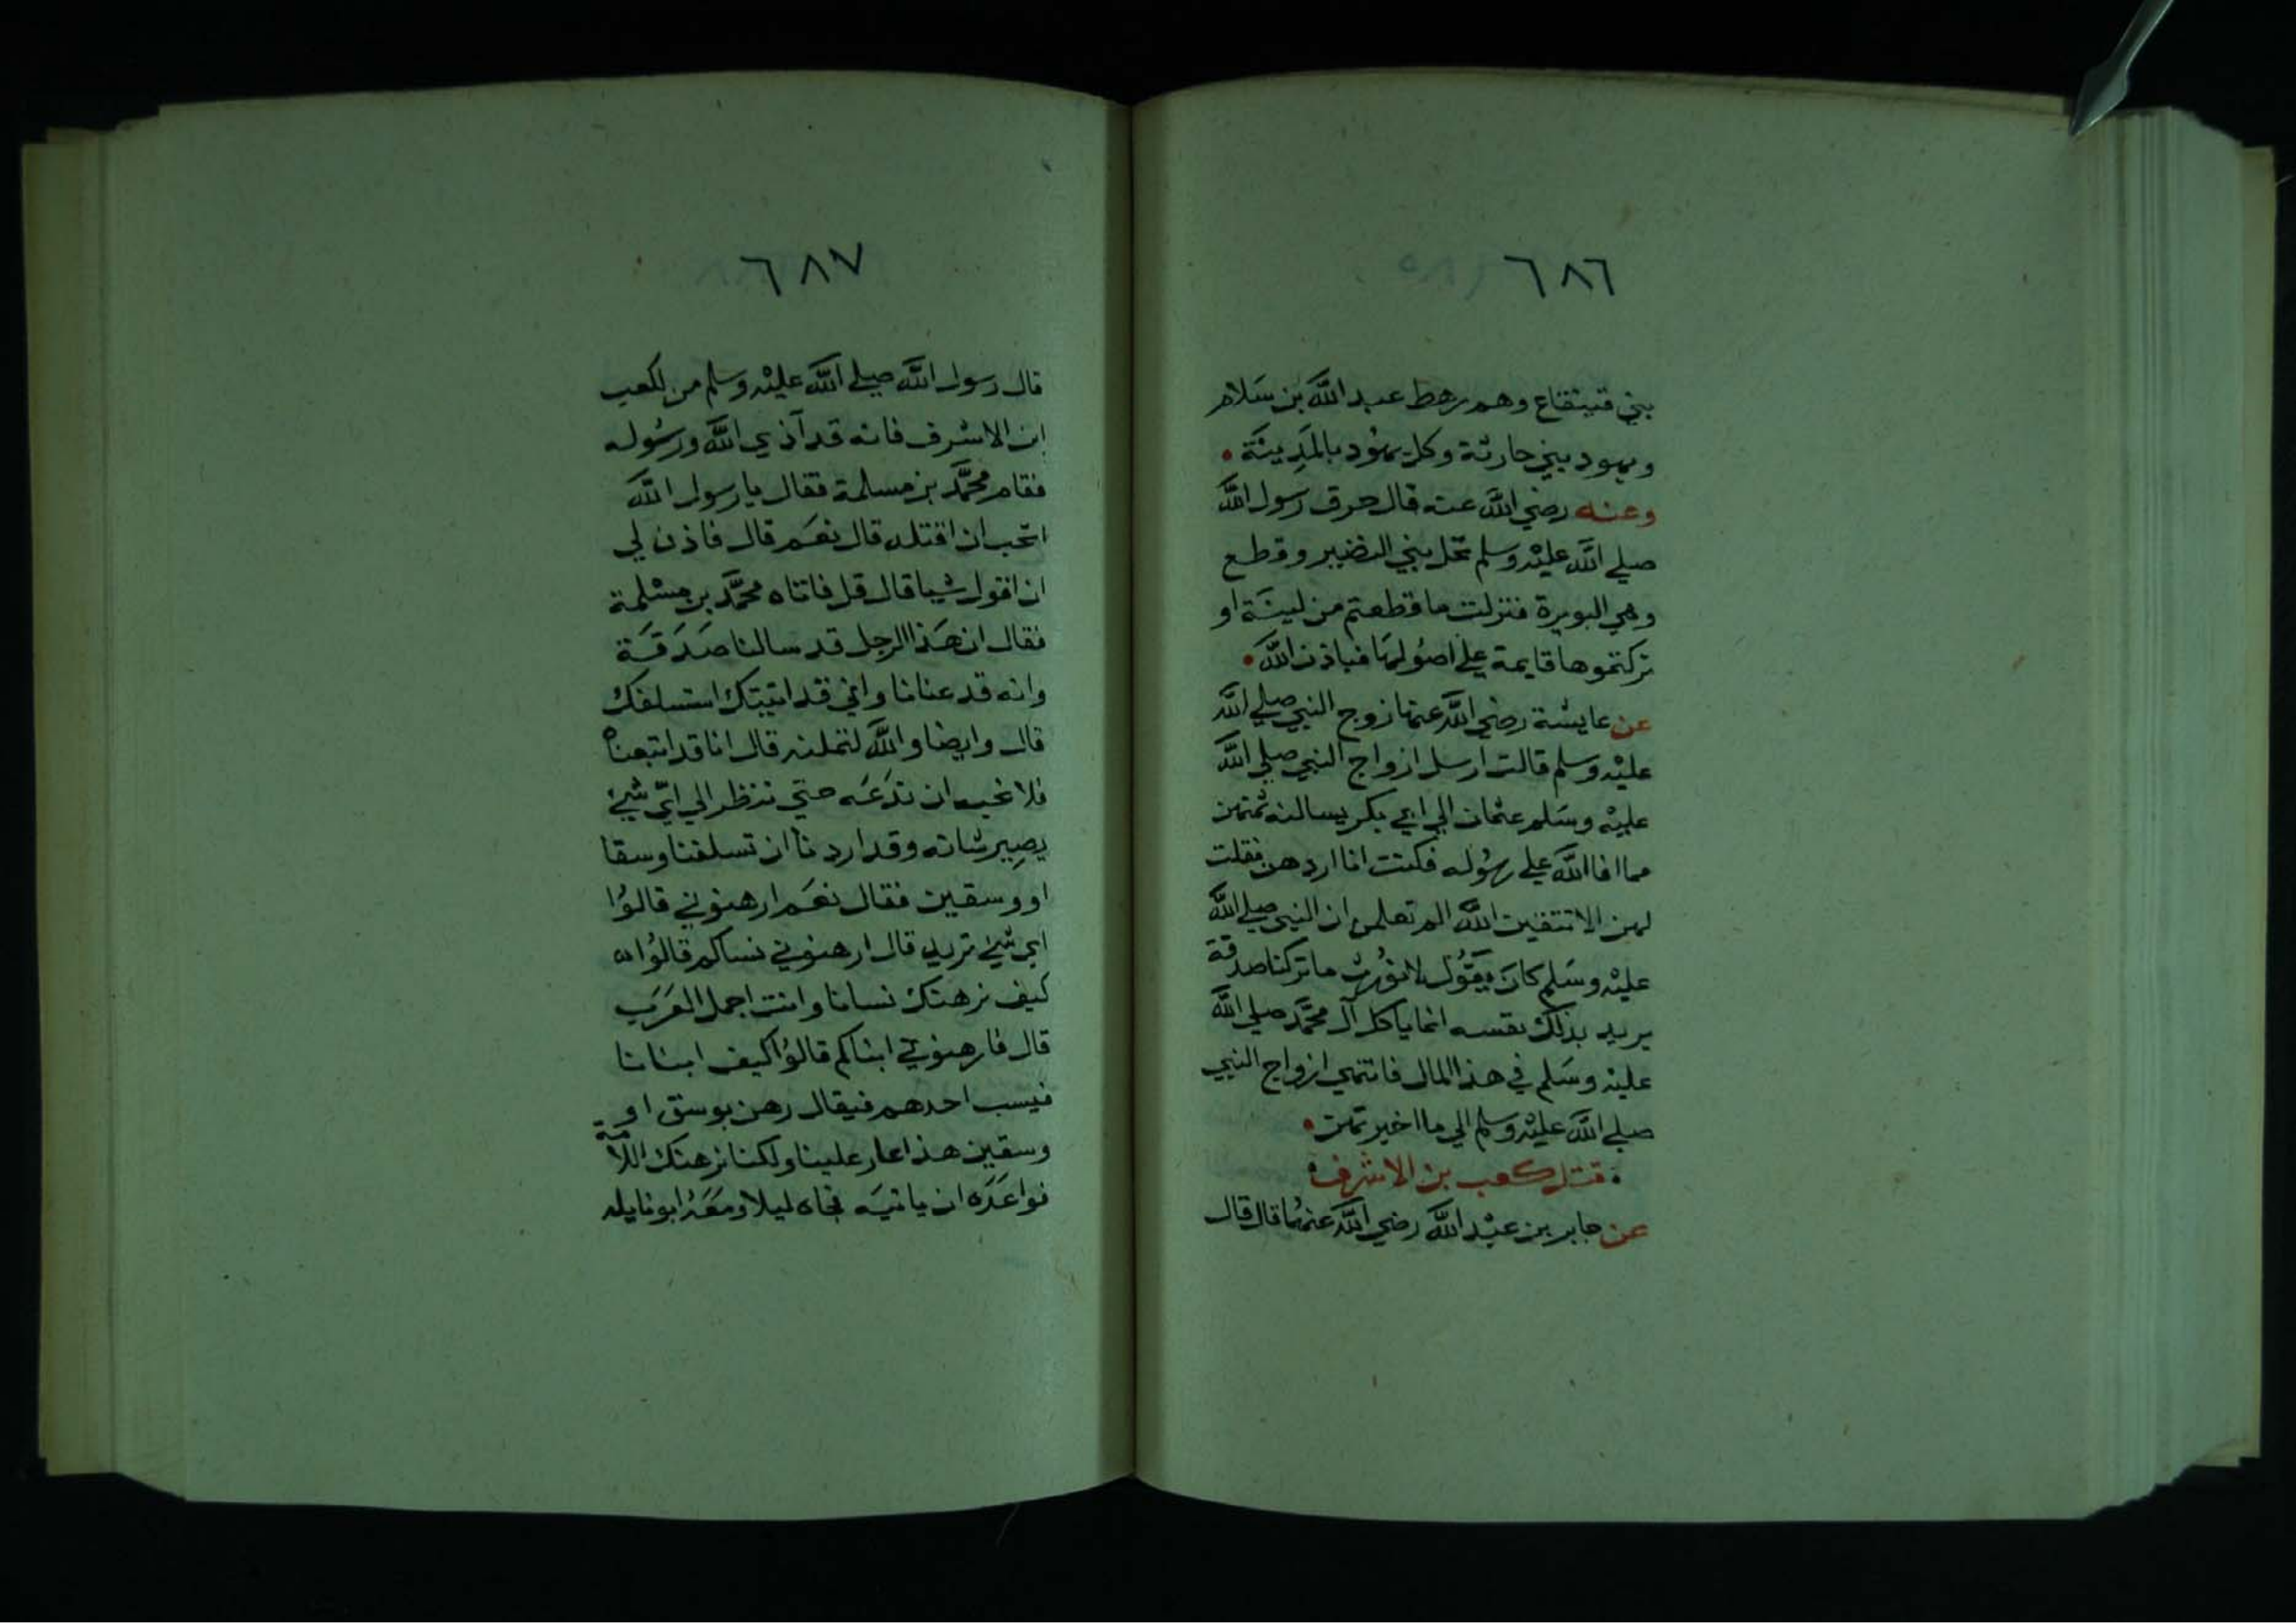 ٦٨٦
بني قينقاع وهم رهط عبد الله بن سَلام
ويهود بني حارثة وكل يهُود بالمَدِينَة
وعنه رضي الله عنه قال حرق رسول الله
صلي الله عليْه وسلم نخل بني النضير وقطع
وهي البويرة فنزلت ما قطعتم من لينَة او
تركتموها قايمة علي اصُولهَا فباذن الله
عن عايشة رضي الله عنها زوج النبي صلي الله
عليْه وسلم قالت ارسل ازواج النبي صلي الله
عليْه وسَلم عثمان الي ابي بكر يسالنه ثمنهن
مما افا الله علي رسُوله فكنت انا اردهن فقلت
لهن الا تتقين الله الم تعلمن ان النبي صلي الله
عليْه وسَلم كانَ يقوُل لا نوُرث ما تركنا صدقة
يريد بذلك نفسه انما ياكل آل محمَّد صلي الله
عليْه وسَلم في هذا المال فانتهي ازواج النبي
صلي الله عليْه وسلم الي ما اخبرتهن
قتل كعب بن الاشرف
عن جابر بن عبْد الله رضي الله عنهُما قال قال
٦٨٧
قال رسول الله صلي الله عليْه وسلم من لكعب
ابن الاشرف فانه قد آذي الله ورسُوله
فقام محمَّد بن مسلمة فقال يا رسول الله
اتحب ان اقتله قال نعَم قال فاذن لي
ان اقول شيا قال قل فاتاه محمَّد بن مسْلمة
فقال ان هَذا الرجل قد سالنا صَدَقَة
وانه قد عنانا واني قد اتيتك استسلفك
قال وايضا والله لتملنه قال انا قد اتبعناه
فلا نحب ان ندَعَه حتي ننظر الي ايّ شيْ
يصِير شانه وقد اردنا ان تسلفنا وسقا
او وسقين فقال نعَم ارهنوني قالوُا
اي شيْ تريد قال ارهنوني نساكم قالوُا
كيف نرهنك نسانا وانت اجمل العَرَب
قال فارهنوني ابناكم قالوُا كيف ابنانا
فيسب احدهم فيقال رهن بوسق او
وسقين هذا عار علينا ولكنا نرهنك اللامة
فواعَدَه ان ياتيَه فجاه ليلا ومَعَهُ ابو نايله